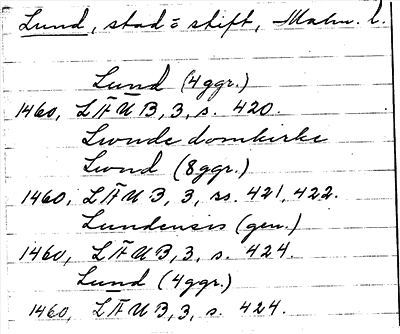 Lund, stad o stift, Malm. l.
Lund (4ggr.)
1460, LÄUB, 3, s. 420.
Lwnde domkirke
Lwnd (8ggr.)
1460, LÄUB, 3, ss. 421, 422.
Lundensis (gen.)
1460, LÄUB, 3, s. 424.
Lund (4ggr.)
1460, LÄUB, 3, s. 424.